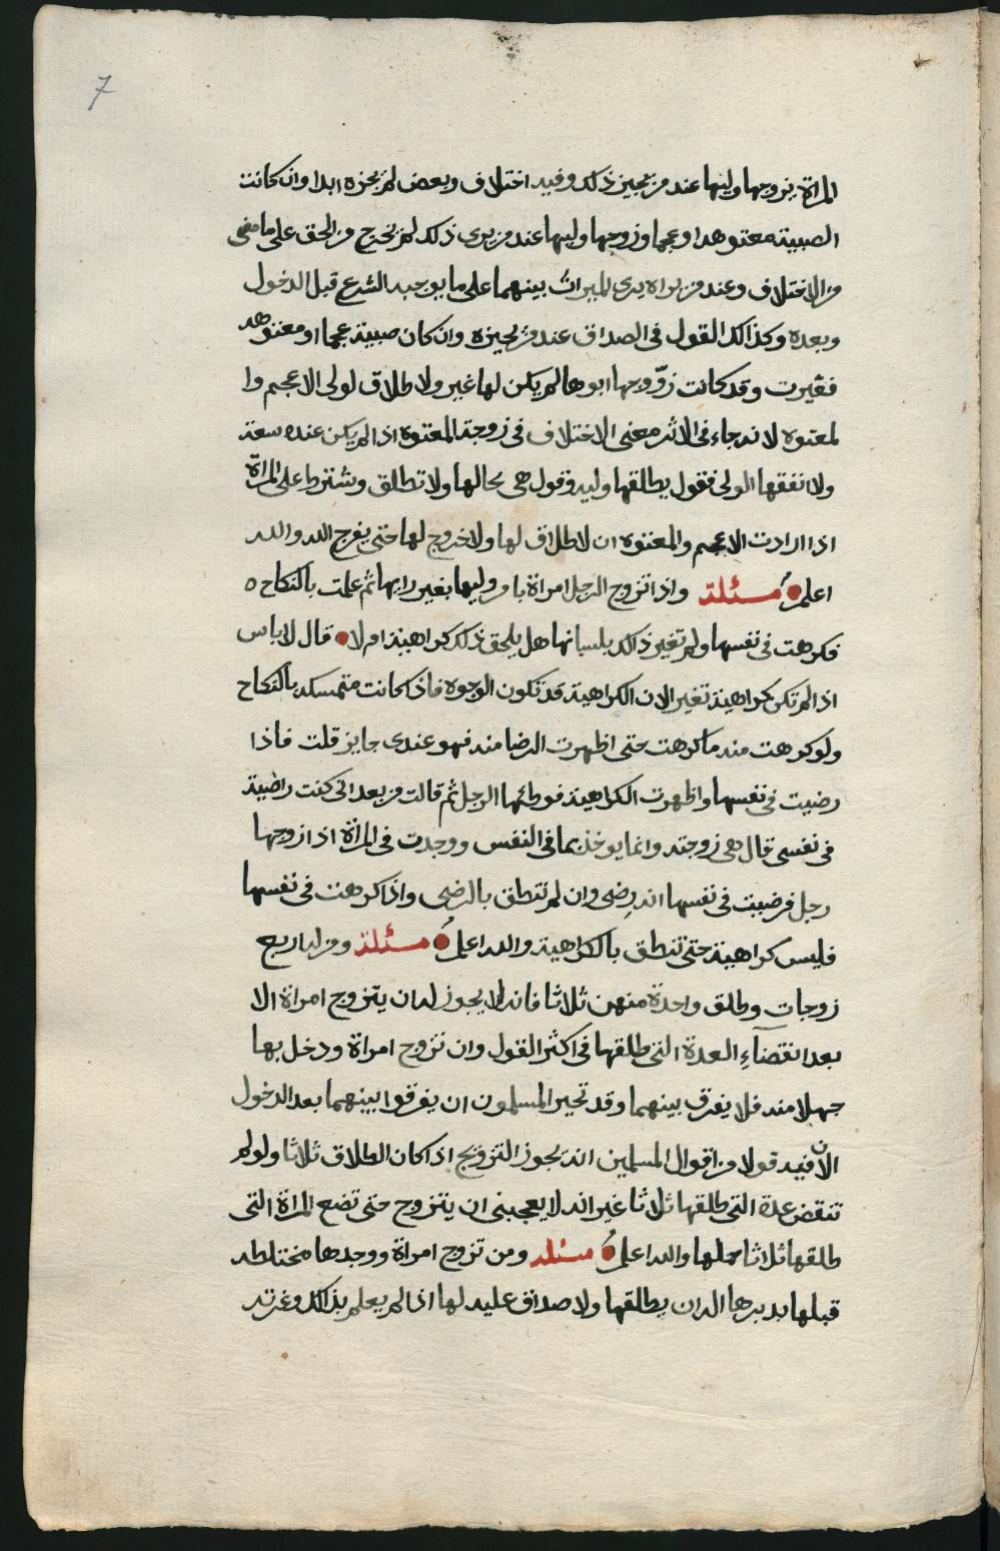 7
المراة يزوجها وليها عند من يجيز ذلك وفيه اختلاف وبعض لم يجزه ابدا وان كانت
الصبية معتوهه او عجما وزوجها وليها عند من يرى ذلك لم يخرج من الحق على ما مضى
من الاختلاف وعند من يراه يرى الميراث بينهما على ما يوجبه الشرع قبل الدخول
وبعده وكذالك القول في الصداق عند من يجيزه وان كان صبية عجما او معتوهه
فغيرت وقد كانت زوّجها ابوها لم يكن لها غير ولا طلاق لولي الاعجم وا
لمعتوه لانه جاء في الاثر معنى الاختلاف في زوجة المعتوه اذا لم يكن عنده سعة
ولا انفقها الولي فقول يطلقها وليه وقول هي بحالها ولا تطلق ويشترط على المراة
اذا ارادت الاعجم والمعتوه ان لا طلاق لها ولا خروج لها حتى يفرج الله والله
اعلم مسئلة واذا تزوج الرجل امراة بامر وليها بغير رايها ثم علمت بالنكاح ه
فكرهت في نفسها ولم تغير ذالك بلسانها هل يلحق ذلك كراهية ام لا قال لا باس
اذا لم تكن كراهية تغير الان الكراهية قد تكون الوجوه فاذا كانت متمسكه بالنكاح
ولو كرهت منه ما كرهت حتى اظهرت الرضا منه فهو عندي جايز قلت فاذا
رضيت في نفسها واظهرت الكراهية فوطئها الرجل ثم قالت من بعد اني كنت راضية
في نفسي قال هي زوجته وانما يوخذ بما في النفس ووجدت في المراة اذا زوجها
رجل فرضيت في نفسها انه رضى وان لم تنطق بالرضى واذا كرهت في نفسها
فليس كراهية حتى تنطق بالكراهية والله اعلم مسئلة ومن له اربع
زوجات وطلق واحدة منهن ثلاثا فانه لا يجوز له ان يتزوج امراة الا
بعد انقضآء العدة التي طلقها في اكثر القول وان تزوج امراة ودخل بها
جهلا منه فلا يفرق بينهما وقد تحير المسلمون ان يفرقوا بينهما بعد الدخول
الان فيه قولا من اقوال المسلمين انه يجوز التزويج اذا كان الطلاق ثلاثا ولو لم
تنقض عدة التي طلقها ثلاثا غير انه لا يعجبني ان يتزوج حتى تضع المراة التي
طلقها ثلاثا حملها والله اعلم مسئله ومن تزوج امراة ووجدها مختلطه
قبلها بدبرها اله ان يطلقها ولا صداق عليه لها اذا لم يعلم بذالك وغرته